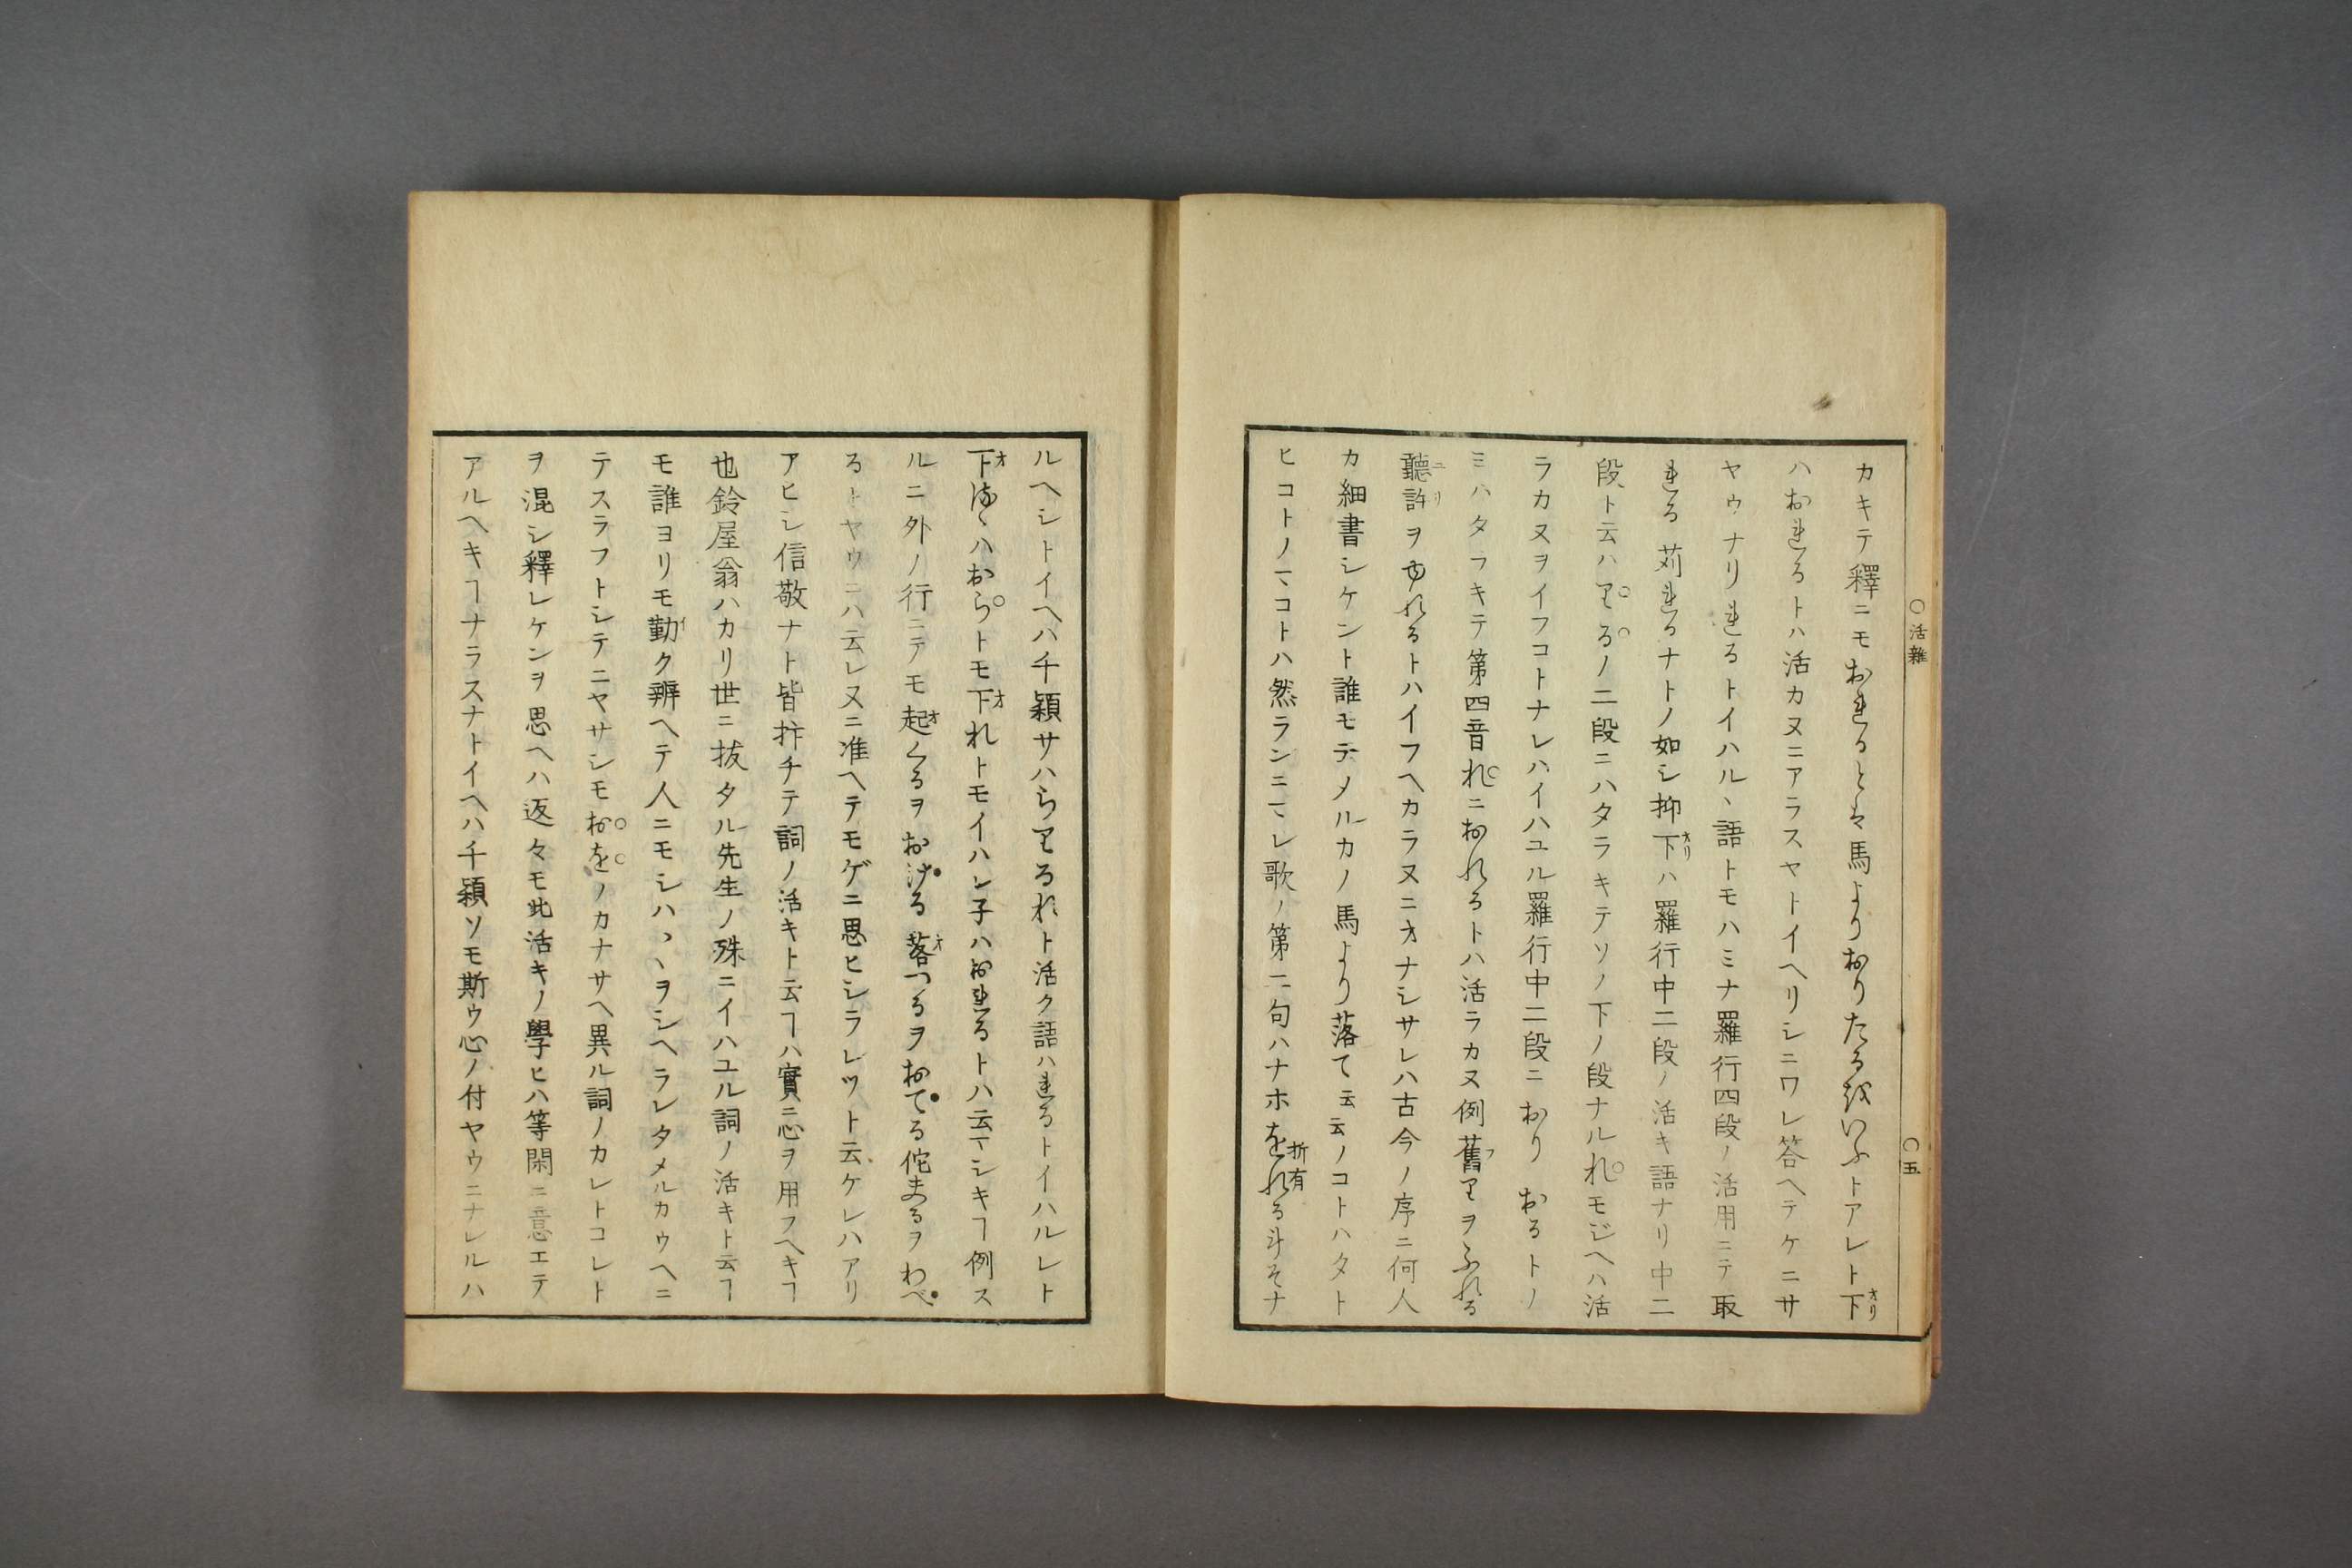 ○活雜
○五
カキテ釋ニモおれるとは馬よりおりたる我いふトアレト下オリ
ハおれるトハ活カヌニアラスヤトイヘリシニワレ答ヘテケニサ
ヤウナリれるトイハルヽ語トモハミナ羅行四段ノ活用ニテ取
れる苅れるナトノ如シ抑下オリハ羅行中二段ノ活キ語ナリ中二
段ト云ハりるノ二段ニハタラキテソノ下ノ段ナルれモジヘハ活
ラカヌヲイフコトナレハイハユル羅行中二段ニおりおるトノ
ミハタラキテ第四音れニおれるトハ活ラカヌ例舊フりヲふれる
聽許ヲゆれるトハイフヘカラヌニオナシサレハ古今ノ序ニ何人
カ細書シケント誰モテメルカノ馬より落て云云ノコトハタト
ヒコトノヽコトハ然ランニモレ歌ノ第二句ハナホをれる折有斗そナ
ルヘシトイヘハ千穎サハらりるれト活ク語ハれるトイハルレト
下オをハおらトモ下オれトモイハン子ハおれるトハ云マシキヿ例ス
ルニ外ノ行ニテモ起オくるヲおける落オつるヲおてる侘まるヲわべ
るトヤウニハ云レヌニ准ヘテモゲニ思ヒシラレツト云ケレハアリ
アヒシ信敬ナト皆抃チテ詞ノ活キト云ヿハ實ニ心ヲ用フヘキヿ
也鈴屋翁ハカリ世ニ拔タル先生ノ殊ニイハユル詞ノ活キト云ヿ
モ誰ヨリモ勤イク辨ヘテ人ニモシハヽヽヲシヘラレタメルカウヘニ
テスラフトシテニヤサシモおをノカナサヘ異ル詞ノカレトコレト
ヲ混シ釋レケンヲ思ヘハ返々モ此活キノ學ヒハ等閑ニ意エテ
アルヘキヿナラスナトイヘハ千穎ソモ斯ウ心ノ付ヤウニナレルハ